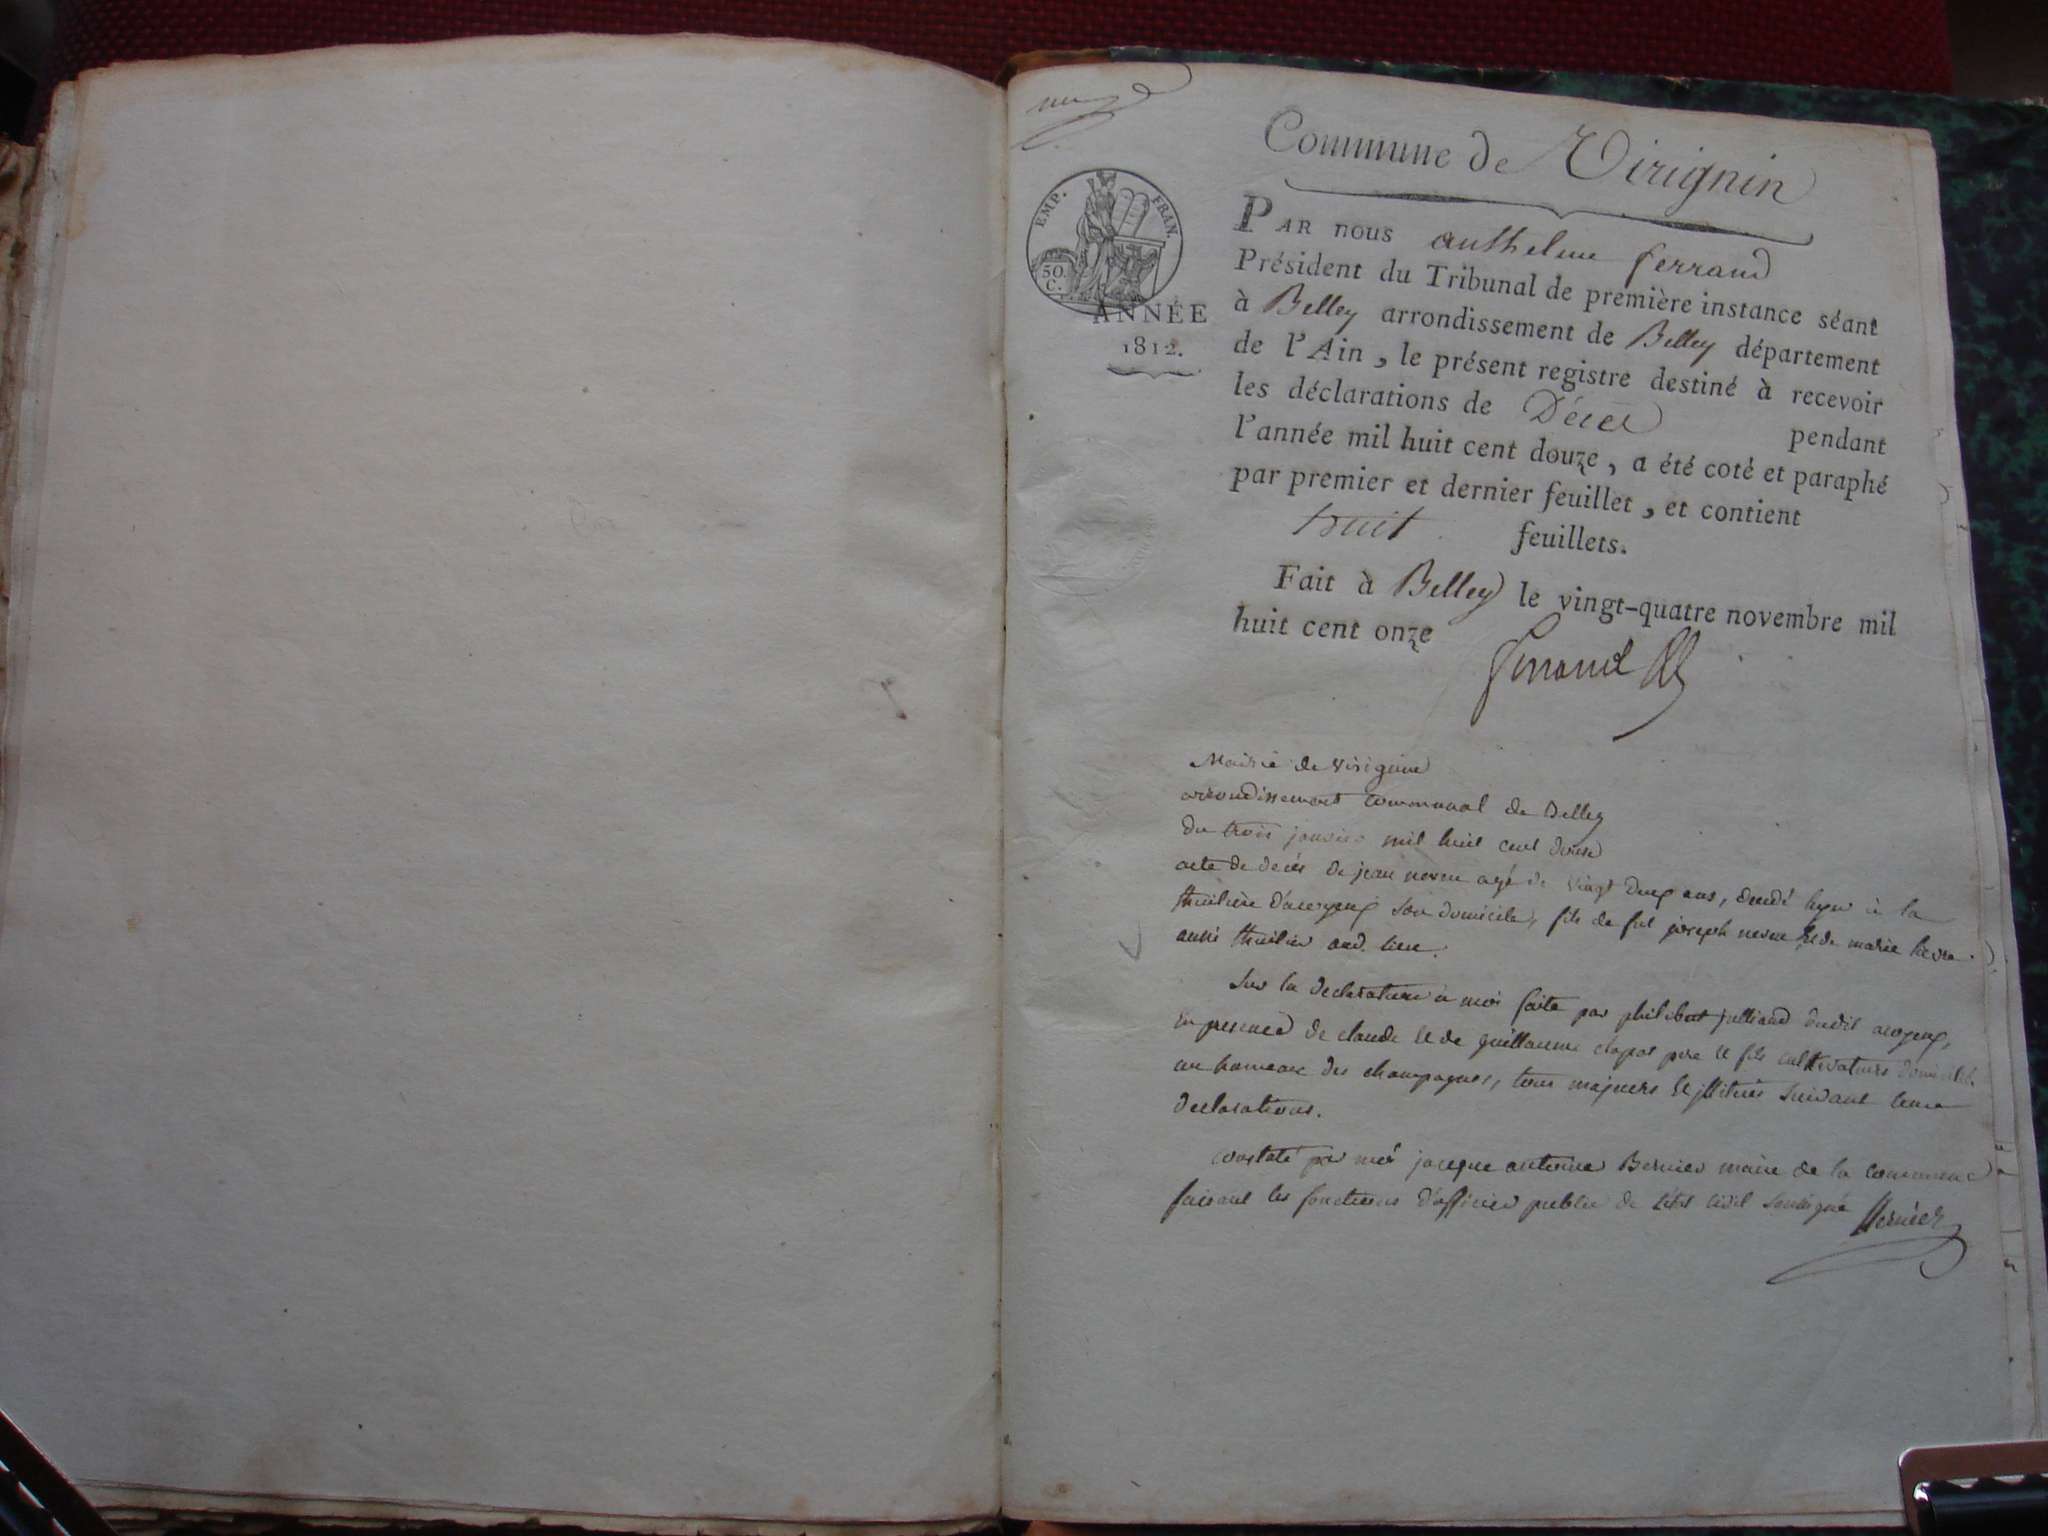 Commune de Virignin
EMP. FRAN.
50. C.
ANNÉE
1812.
PAR nous anthelme ferrand
Président du Tribunal de première instance séant
à Belley arrondissement de Belley département
de l'Ain, le présent registre destiné à recevoir
les déclarations de Décès pendant
l'année mil huit cent douze, a été coté et paraphé
par premier et dernier feuillet, et contient
huit feuillets.
Fait à Belley le vingt-quatre novembre mil
huit cent onze
ferrand
Mairie de Virignin
arrondissement communal de Belley
du trois janvier mil huit cent douse
acte de décès de jean agé de vingt deux ans, décédé hyer à la
son domicile, fils de feu joseph et de marie
aussi lieu.
Sur la declaration à moi faite par philibert julliand dudit
en presence de claude et de guillaume père et fils cultivateurs
au hameau des champagnes, tous majeurs suivant leurs
declarations.
constaté par moi jacque antoine Bernier maire de la commune
faisant les fonctions d'officier public de l'état civil soussigné Bernier